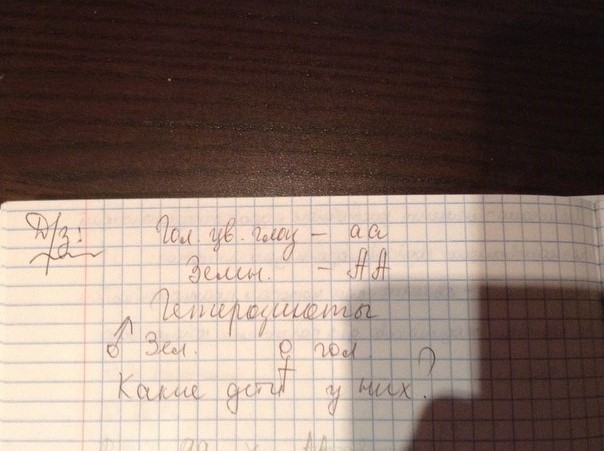 Д/з: Гол. цв. глаз – аа
Зелён. – АА
Гетерозиготы
♂ Зел. ♀ гол.
Какие дети у них?
аа х АА